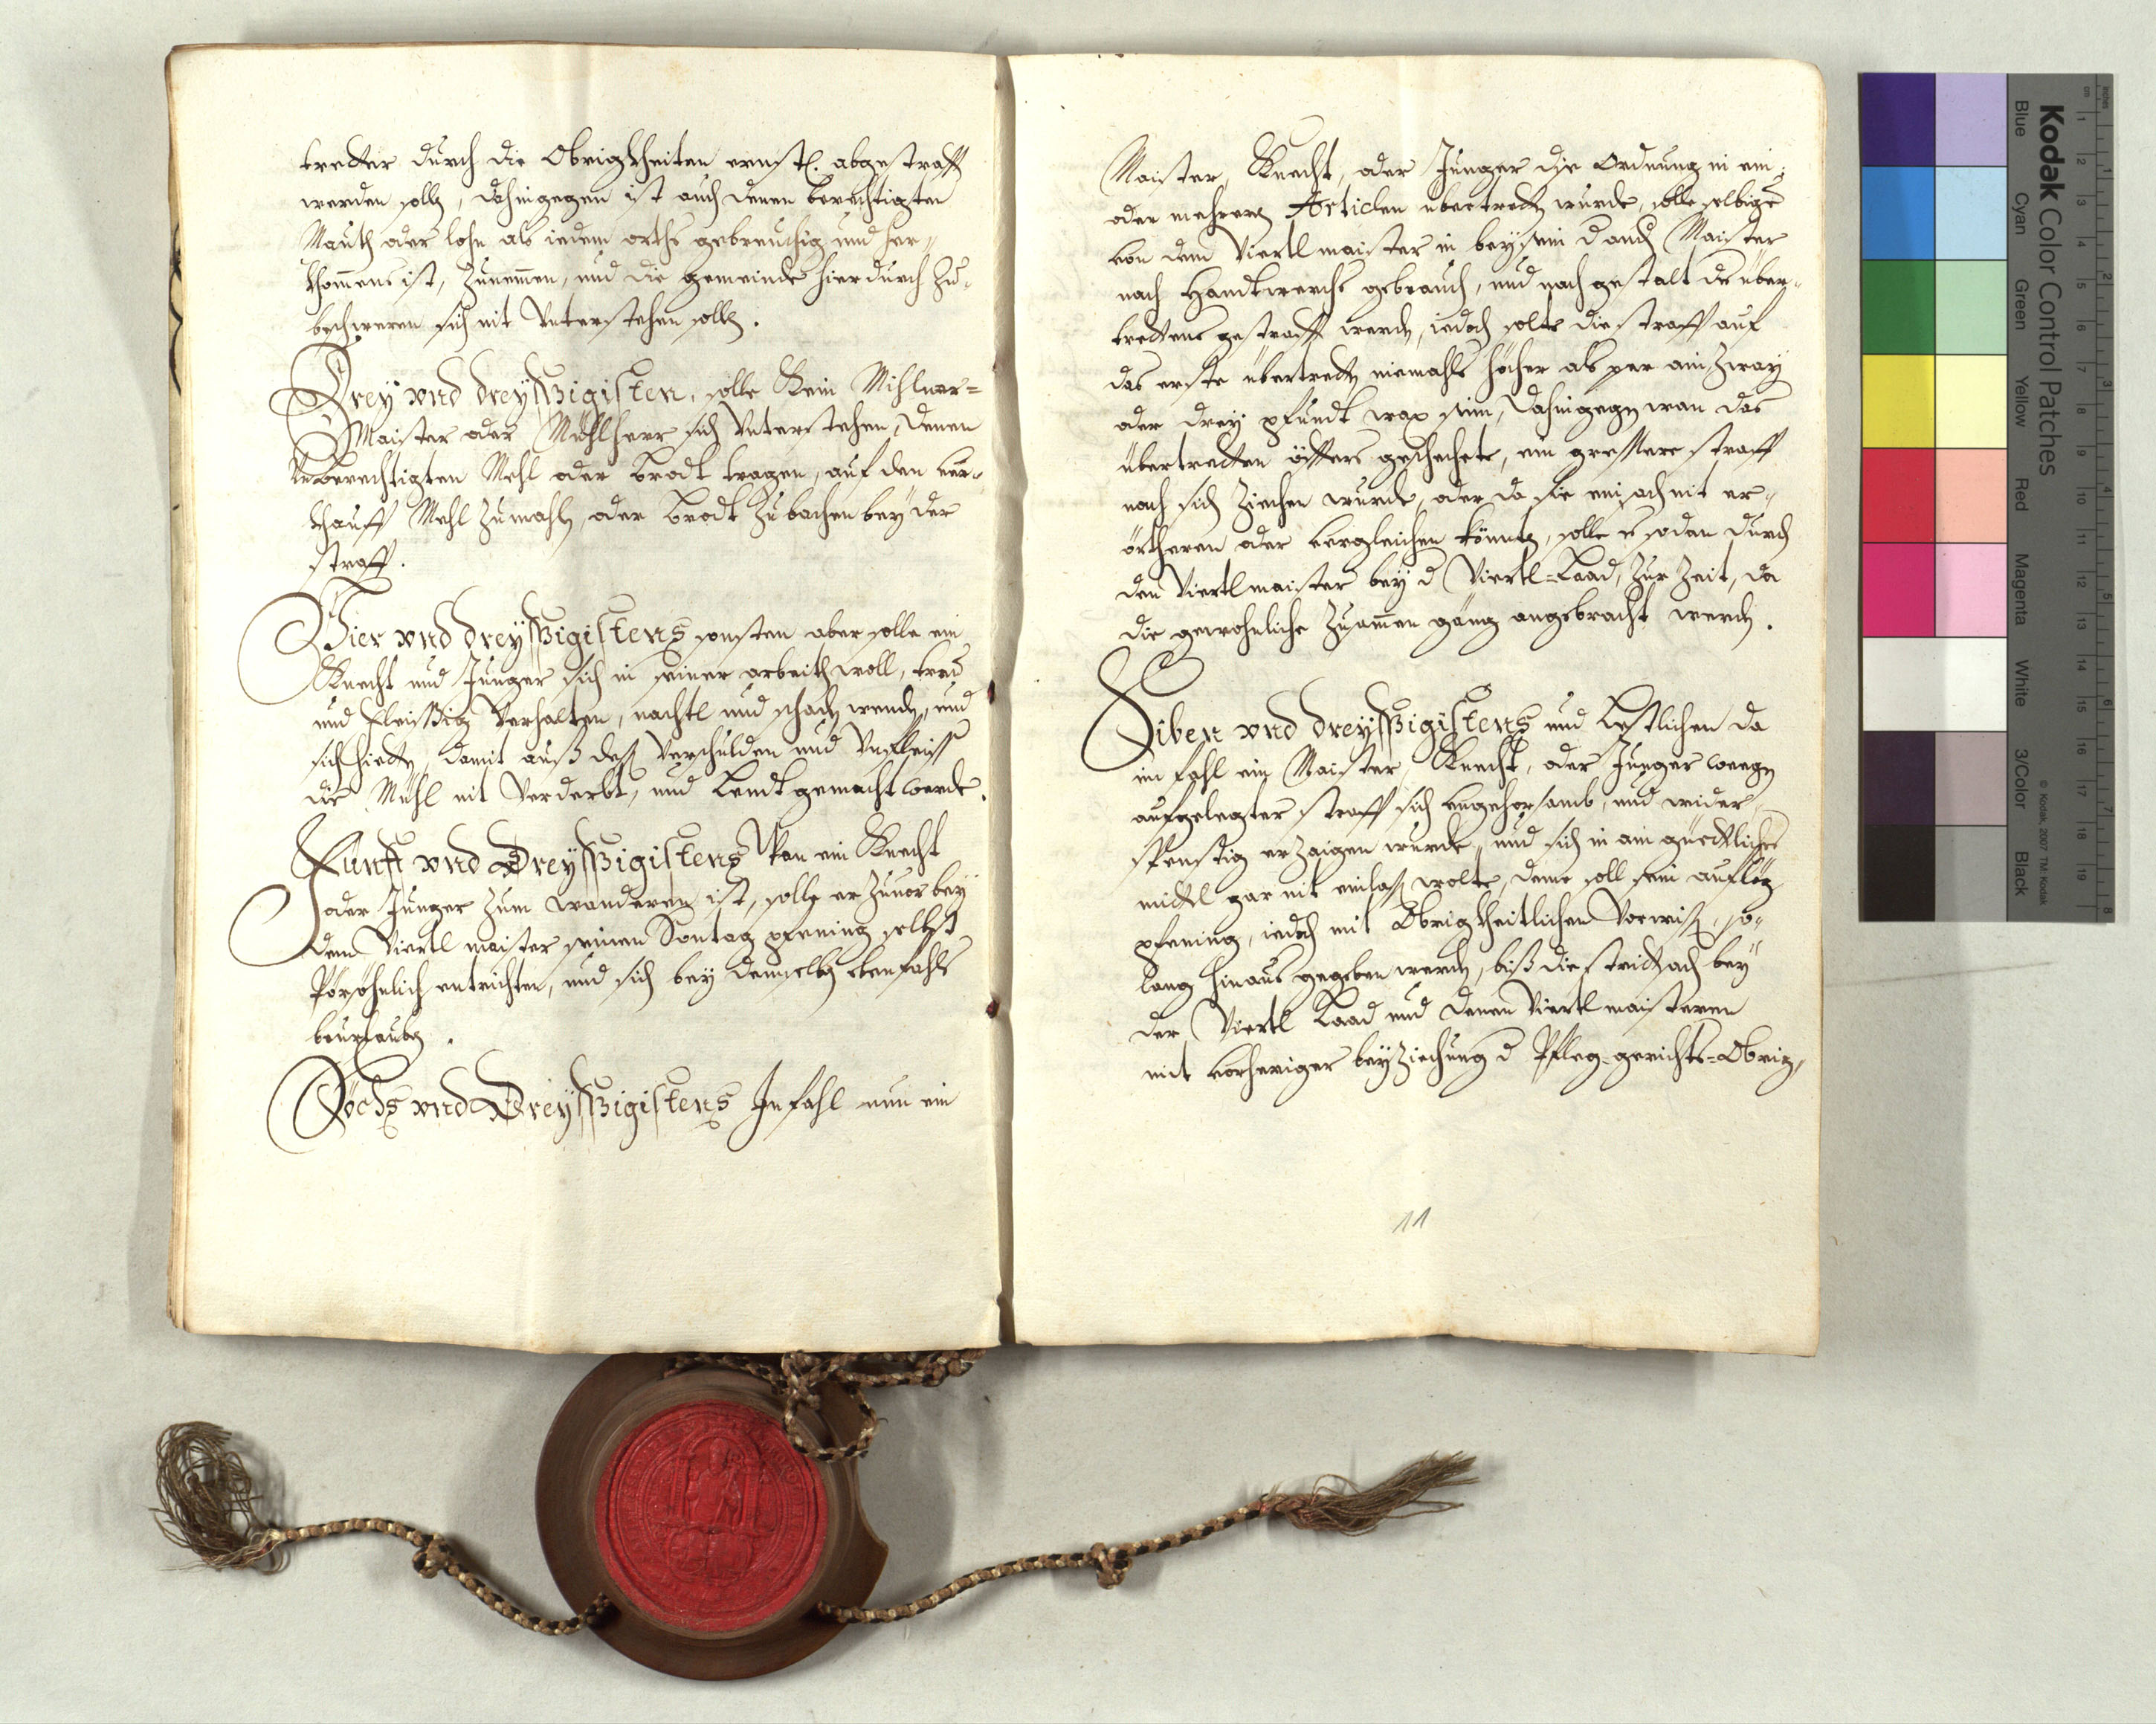 tretter durch die Obrigkheiten ernstl. abgestrafft
werden solle, dahingegen ist auch denen berechtigten
Mauth oder lohn als iedem orths gebreuchig und her-
khommens ist, zunemmen, und die gemeinde hierdurch zu-
beschweren sich nit Unterstehen solle.
Drey und dreyssigisten, solle Kein Mihlner-
Maister oder Mühlherr sich Unterstehen, denen
Unberechtigten Mehl oder brodt tragen, auf den ver-
khauff Mehl zumahlen, oder brodt zubachen bey der
straff.
Vier und dreyssigistens sonsten aber solle ein
Knecht und Junger sich in seiner arbeith woll, treu
und fleissig Verhalten, nachtl und schaden wenden, und
sich hietten, damit auß dessen Verschulden und Unfleiss
die Mühl nit Verderbt, und Lendt gemacht werde.
Fünfft und Dreyssigistens Wan ein Knecht
oder Junger zum wanderen ist, solle er zuvor bey
dem Viertl maister seinen Sontag pfening selbst
Persöhnlich entrichten, und sich bey demselben ebenfahls
beurlauben.
Söchs und Dreyssigistens Im fahl nun ein
Maister, Knecht, oder Junger die Ordnung in ein-
oder mehrern Articlen übertretten wurde, solle selbiger
von dem Viertlmaister in beysein d andern Maister
nach Handtwerchs gebrauch, und nach gestalt des über-
trettens gestrafft werden, iedoch solte die straff auf
das erste übertretten niemahls höcher als per ain zway
oder drey pfundt wax sein, dahingegen wan das
übertretten öffters geschechete, ein gressere straff
nach sich ziechen wurde, oder da sie ein sach nit er-
örtheren oder vergleichen könnten, solle es sodan durch
den Viertlmaister bey d Viertl-Laad, zur Zeit, da
die gewohnliche Zusammen gäng angebracht werden.
Siben und dreyssigistens und Letstlichen da
im fahl ein Maister, Knecht, oder Junger weegen
aufgelegter straff sich ungehorsamb, und wider-
spenstig erzaigen wurde, und sich in ain güettliches
mittl gar nit einlassen wolte, deme soll sein aufleg
pfening, iedoch mit Obrigkheitlichen Vorwissen, so-
lang hinaus gegeben werden, biß die strittsach bey
der Viertl Laad und denen Viertlmaisteren
mit vorheriger beyziechung d Pfleg-gerichts-Obrig-
11
Kodak Color Control Patches
© Kodak, 2007 TM: Kodak
Blue Cyan Green Yellow Red Magenta White 3/Color Black
inches 1 2 3 4 5 6 7 8
cm 1 2 3 4 5 6 7 8 9 10 11 12 13 14 15 16 17 18 19